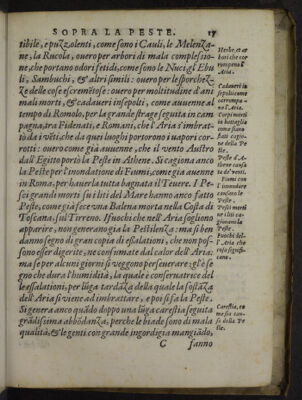 SOPRA LA PESTE. 17
tibile, e puzzolenti, come sono i Cauli, le Melenza
ne, la Rucola, ouero per arbori di mala complessio-
ne, che portano odori fetidi, come sono le Nuci, gl'Ebu
li, Sambuchi, & altri simili: ouero per le sporchez-
ze delle cose escremẽtose: ouero per moltitudine d'ani
mali morti, & cadaueri insepolti, come auuenne al
tempo di Romolo, per la grande strage seguita in cam
pagna, tra Fidenati, e Romani, che l'Aria s'imbrat-
tò da i vẽti, che da quei luoghi portorono i uapori cor-
rotti: ouero come già auuenne, che il vento Austro
dall'Egitto portò la Peste in Athene. Si cagiona anco
la Peste per l'inondatione di Fiumi, come già auuene
in Roma, per hauerla tutta bagnata il Teuere. I Pe-
sci grandi morti su i liti del Mare hanno anco fatto
Peste, come già fece vna Balena morta nella Costa di
Toscana, sul Tirreno. I fuochi che nell'Aria sogliono
apparire, non generano già la Pestilenza: ma sì ben
danno segno di gran copia di essalationi, che non pos-
sono esser digerite, ne consumate dal calor dell'Aria:
ma se per alcuni giorni si veggono perseuerare; gl'è se
gno che dura l'humidità, la quale è conseruatrice del
le essalationi, per lũga tardãza della quale la sostãza
dell'Aria si viene ad imbrattare, e poi si fa la Peste.
Si genera anco quãdo doppo vna lũga carestia seguita
grãdissima abbõdanza; perche le biade sono di mala
qualità, & le genti con grande ingordigia mangiãdo,
C fanno
Herbe, et ar
bori che cor
rompeno l'
Aria.
Cadaueri in
sepolti come
corrompa-
no l'Aria.
Peste d'A-
thene
Fiumi con
l'inondare
causano la
Peste.
Pesci morti
ne i liti ca-
gionano la
Peste.
Fuochi del-
l'Aria che
cosa signifi-
cano.
Carestia, co
me sia cau-
sa della Pe-
ste.